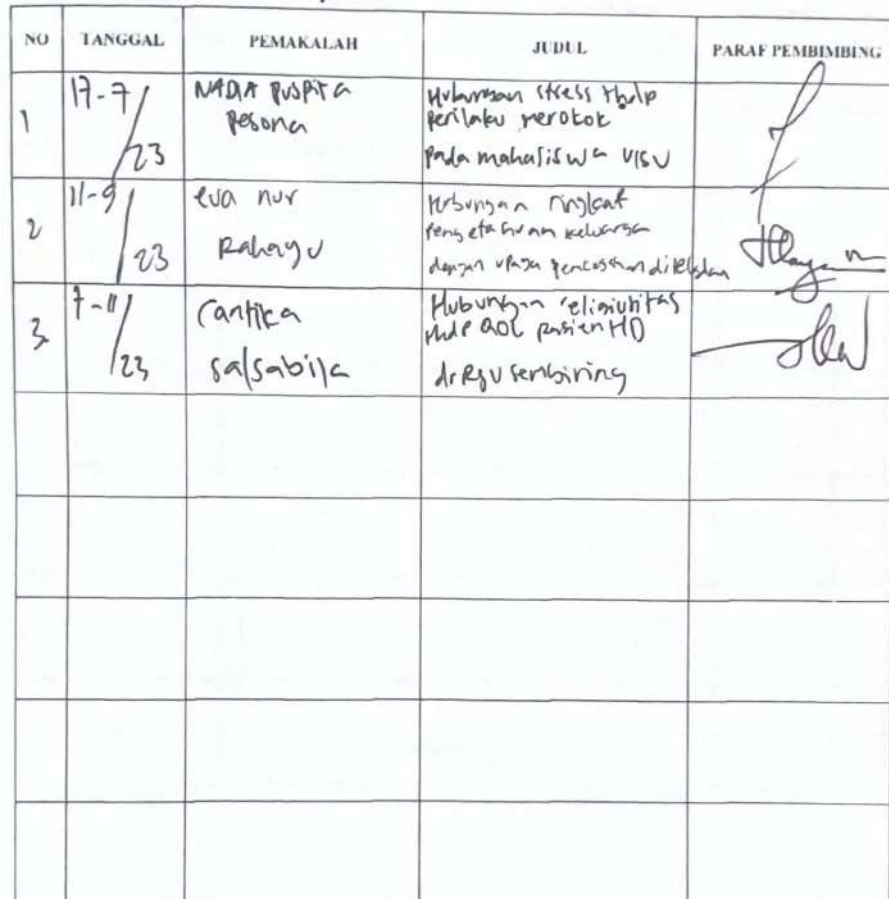 NO TANGGAL PEMAKALAH JUDUL PARAF PEMBIMBING
1 17-7/23 NADIA PUSPITA Pesona Hubungan stress thdp
perilaku merokok
pada mahasiswa UISU
2 11-9/23 eva nur Rahayu Hubungan tingkat
pengetahuan keluarga
dengan upaya pencegahan
3. 7-11/23 Cantika salsabila Hubungan religiusitas
thdp QOL pasien HD
dr Rgu sembiring